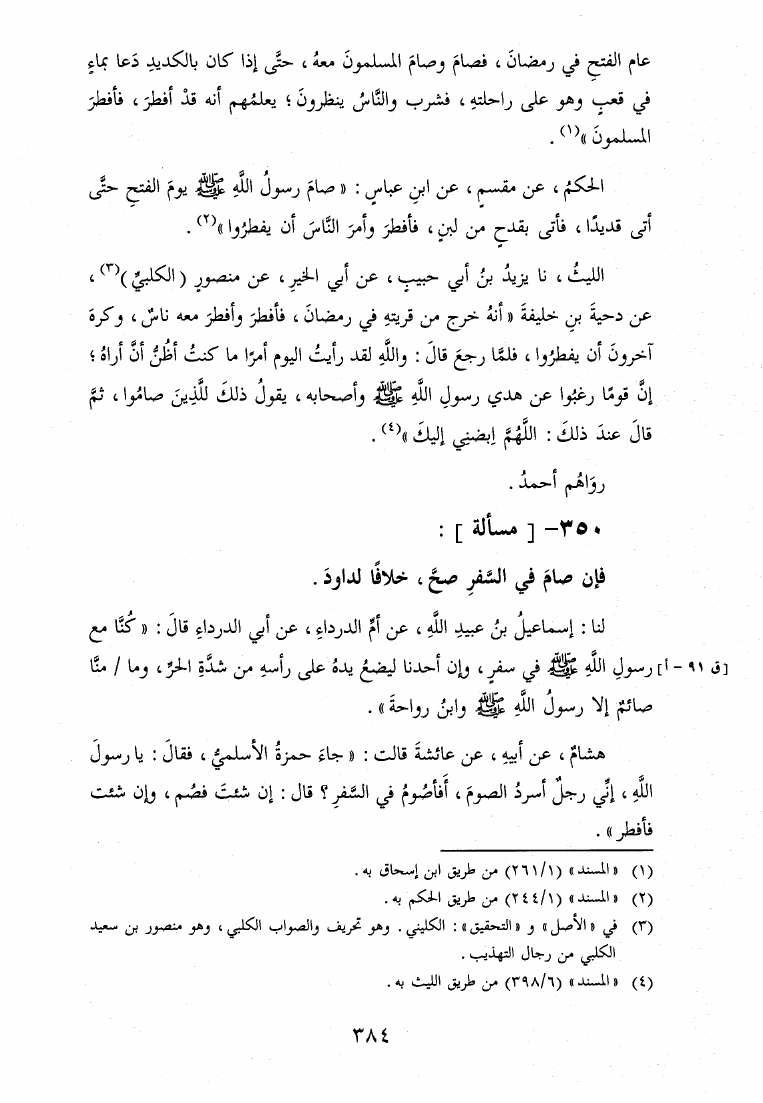 عام الفتحِ في رمضانَ ، فصامَ وصامَ المسلمونَ معهُ ، حتَّى إذا كان بالكديدِ دَعا بماءٍ
في قعبٍ وهو على راحلتهِ ، فشرب والنَّاسُ ينظرونَ ؛ يعلمُهم أنه قدْ أفطرَ ، فأفطرَ
المسلمونَ »(١) .
الحكمُ ، عن مقسمٍ ، عن ابنِ عباسٍ : « صامَ رسولُ اللَّهِ ﷺ يومَ الفتحِ حتَّى
أتى قديدًا ، فأتى بقدحٍ من لبنٍ ، فأفطرَ وأمرَ النَّاسَ أن يفطرُوا »(٢) .
الليثُ ، نا يزيدُ بنُ أبي حبيبٍ ، عن أبي الخيرِ ، عن منصورٍ ( الكلبيِّ )(٣) ،
عن دحيةَ بنِ خليفةَ « أنهُ خرج من قريتهِ في رمضانَ ، فأفطرَ وأفطرَ معه ناسٌ ، وكرهَ
آخرونَ أن يفطرُوا ، فلمَّا رجعَ قالَ : واللَّهِ لقد رأيتُ اليوم أمرًا ما كنتُ أظنُّ أنَّ أراهُ ؛
إنَّ قومًا رغبُوا عن هدي رسولِ اللَّهِ ﷺ وأصحابه ، يقولُ ذلكَ للَّذِينَ صامُوا ، ثمَّ
قالَ عندَ ذلكَ : اللَّهُمَّ اِبضنِي إليكَ »(٤) .
روَاهُم أحمدُ .
٣٥٠- [ مسألة ] :
فإن صامَ في السَّفرِ صحَّ ، خلافًا لداودَ .
لنا : إسماعيلُ بنُ عبيدِ اللَّهِ ، عن أمِّ الدرداءِ ، عن أبي الدرداءِ قالَ : « كُنَّا مع
[ق ٩١ - أ] رسولِ اللَّهِ ﷺ في سفرٍ ، وإن أحدنا ليضعُ يدهُ على رأسهِ من شدَّةِ الحرِّ ، وما / منَّا
صائمٌ إلا رسولُ اللَّهِ ﷺ وابنُ رواحةَ » .
هشامٌ ، عن أبيهِ ، عن عائشةَ قالت : « جاءَ حمزةُ الأسلميُّ ، فقالَ : يا رسولَ
اللَّهِ ، إنِّي رجلٌ أسردُ الصومَ ، أَفأصُومُ في السَّفرِ ؟ قال : إن شئتَ فصُم ، وإن شئت
فأفطر » .
(١) « المسند » (٢٦١/١) من طريق ابن إسحاق به .
(٢) « المسند » (٢٤٤/١) من طريق الحكم به .
(٣) في « الأصل » و « التحقيق » : الكليني . وهو تحريف والصواب الكلبي ، وهو منصور بن سعيد
الكلبي من رجال التهذيب .
(٤) « المسند » (٣٩٨/٦) من طريق الليث به .
٣٨٤